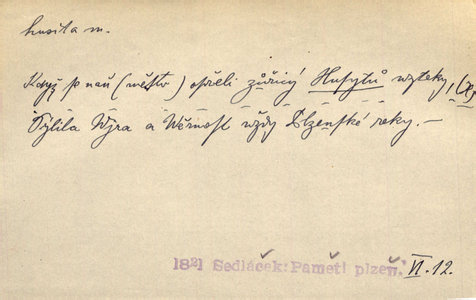 husita m.
Když se naň (město) opřeli zůřicý Husytů wzteky,
Sylila Wjra a Wěrnost wždy Plzenské reky. —
1821 Sedláček: Paměti plzeň. VI. 12.